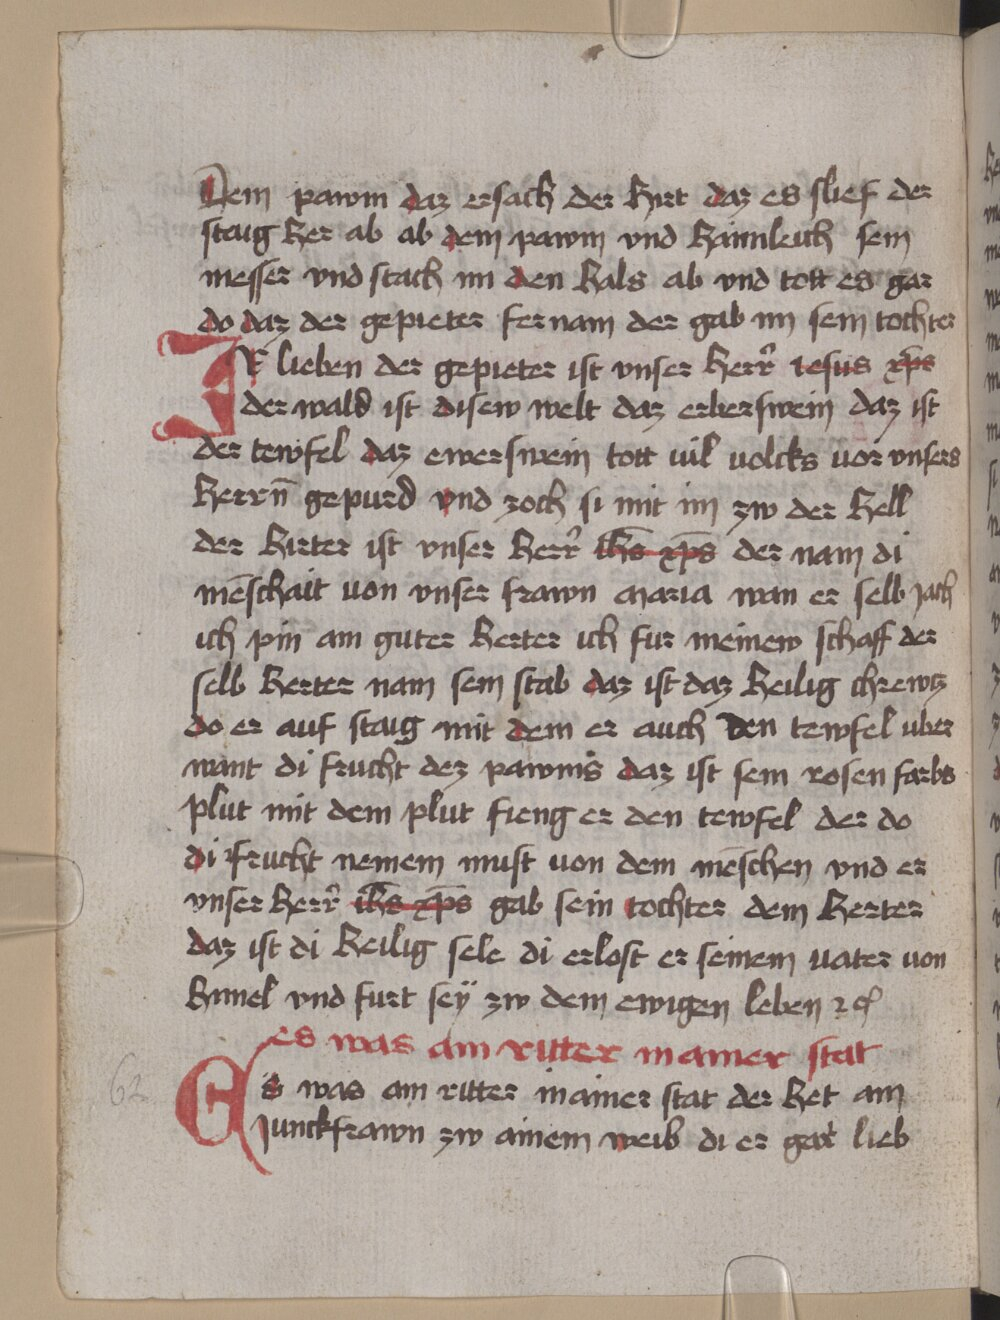 Dem pawm daz ersach der hirt daz es slief der
staig her ab ab dem pawm vnd haimleich sein
messer vnd stach im den hals ab vnd tott es gar
do daz der gepieter fernam der gab im sein tochter
Ir lieben der gepieter ist vnser herr iesus xps
der wald ist disew welt daz erberswein daz ist
der tewfel daz eberswein tott vil volcks vor vnsers
herrn gepurd vnd zoch si mit im zw der hell
der hirter ist vnser herr ihs xps der nam di
menschait von vnser frawn maria wan er selb jach
ich pin ain guter herter ich fur meinew schaff der
selb herter nam sein stab daz ist daz heilig chrewtz
do er auf staig mit dem er auch den tewfel vber
want di frucht dez pawms daz ist sein rosen farbs
plut mit dem plut fieng er den tewfel der do
di frucht nemem must von dem menschen vnd er
vnser herr ihs xps gab sein tochter dem herter
daz ist di heilig sele di erlost er seinem vater von
himel vnd furt sey zw dem ewigen leben
es was ain ritter in ainer stat
Es was ain ritter in ainer stat der het ain
junckfrawn zw ainem weib di er gar lieb
62